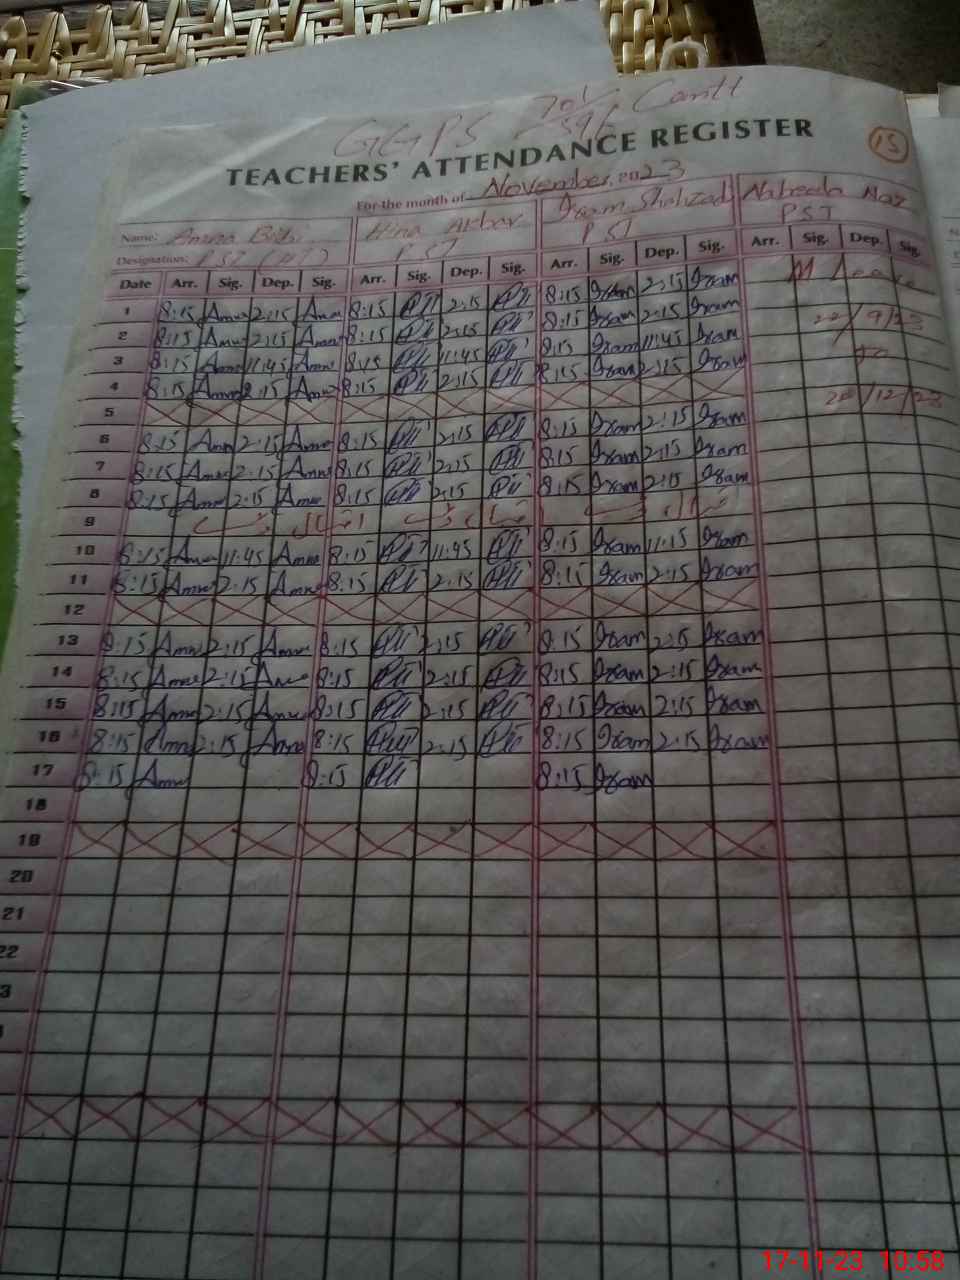 GGPS 701/596 Cantt
TEACHERS' ATTENDANCE REGISTER
15
For the month of November, 2023
Name: Amna Bibi Hina Akbar Iram Shahzadi Naheeda Naz
Designation: PST (HT) PST PST PST
Date Arr. Sig. Dep. Sig. Arr. Sig. Dep. Sig. Arr. Sig. Dep. Sig. Arr. Sig. Dep. Sig.
1 8:15 Amna 2:15 Amna 8:15 2:15 8:15 Iram 2:15 Iram M Leave
2 8:15 Amna 2:15 Amna 8:15 2:15 8:15 Iram 2:15 Iram
3 8:15 Amna 11:45 Amna 8:15 11:45 8:15 Iram 11:45 Iram to
4 8:15 Amna 2:15 Amna 8:15 2:15 8:15 Iram 2:15 Iram
5
6 8:15 Amna 2:15 Amna 8:15 2:15 8:15 Iram 2:15 Iram
7 8:15 Amna 2:15 Amna 8:15 2:15 8:15 Iram 2:15 Iram
8 8:15 Amna 2:15 Amna 8:15 2:15 8:15 Iram 2:15 Iram
9
10 8:15 Amna 11:45 Amna 8:15 11:45 8:15 Iram 11:15 Iram
11 8:15 Amna 2:15 Amna 8:15 2:15 8:15 Iram 2:15 Iram
12
13 8:15 Amna 2:15 Amna 8:15 2:15 8:15 Iram 2:15 Iram
14 8:15 Amna 2:15 Amna 8:15 2:15 8:15 Iram 2:15 Iram
15 8:15 Amna 2:15 Amna 8:15 2:15 8:15 Iram 2:15 Iram
16 8:15 Amna 2:15 Amna 8:15 2:15 8:15 Iram 2:15 Iram
17 8:15 Amna 8:15 8:15 Iram
18
19
20
21
22
3
17-11-23 10:58